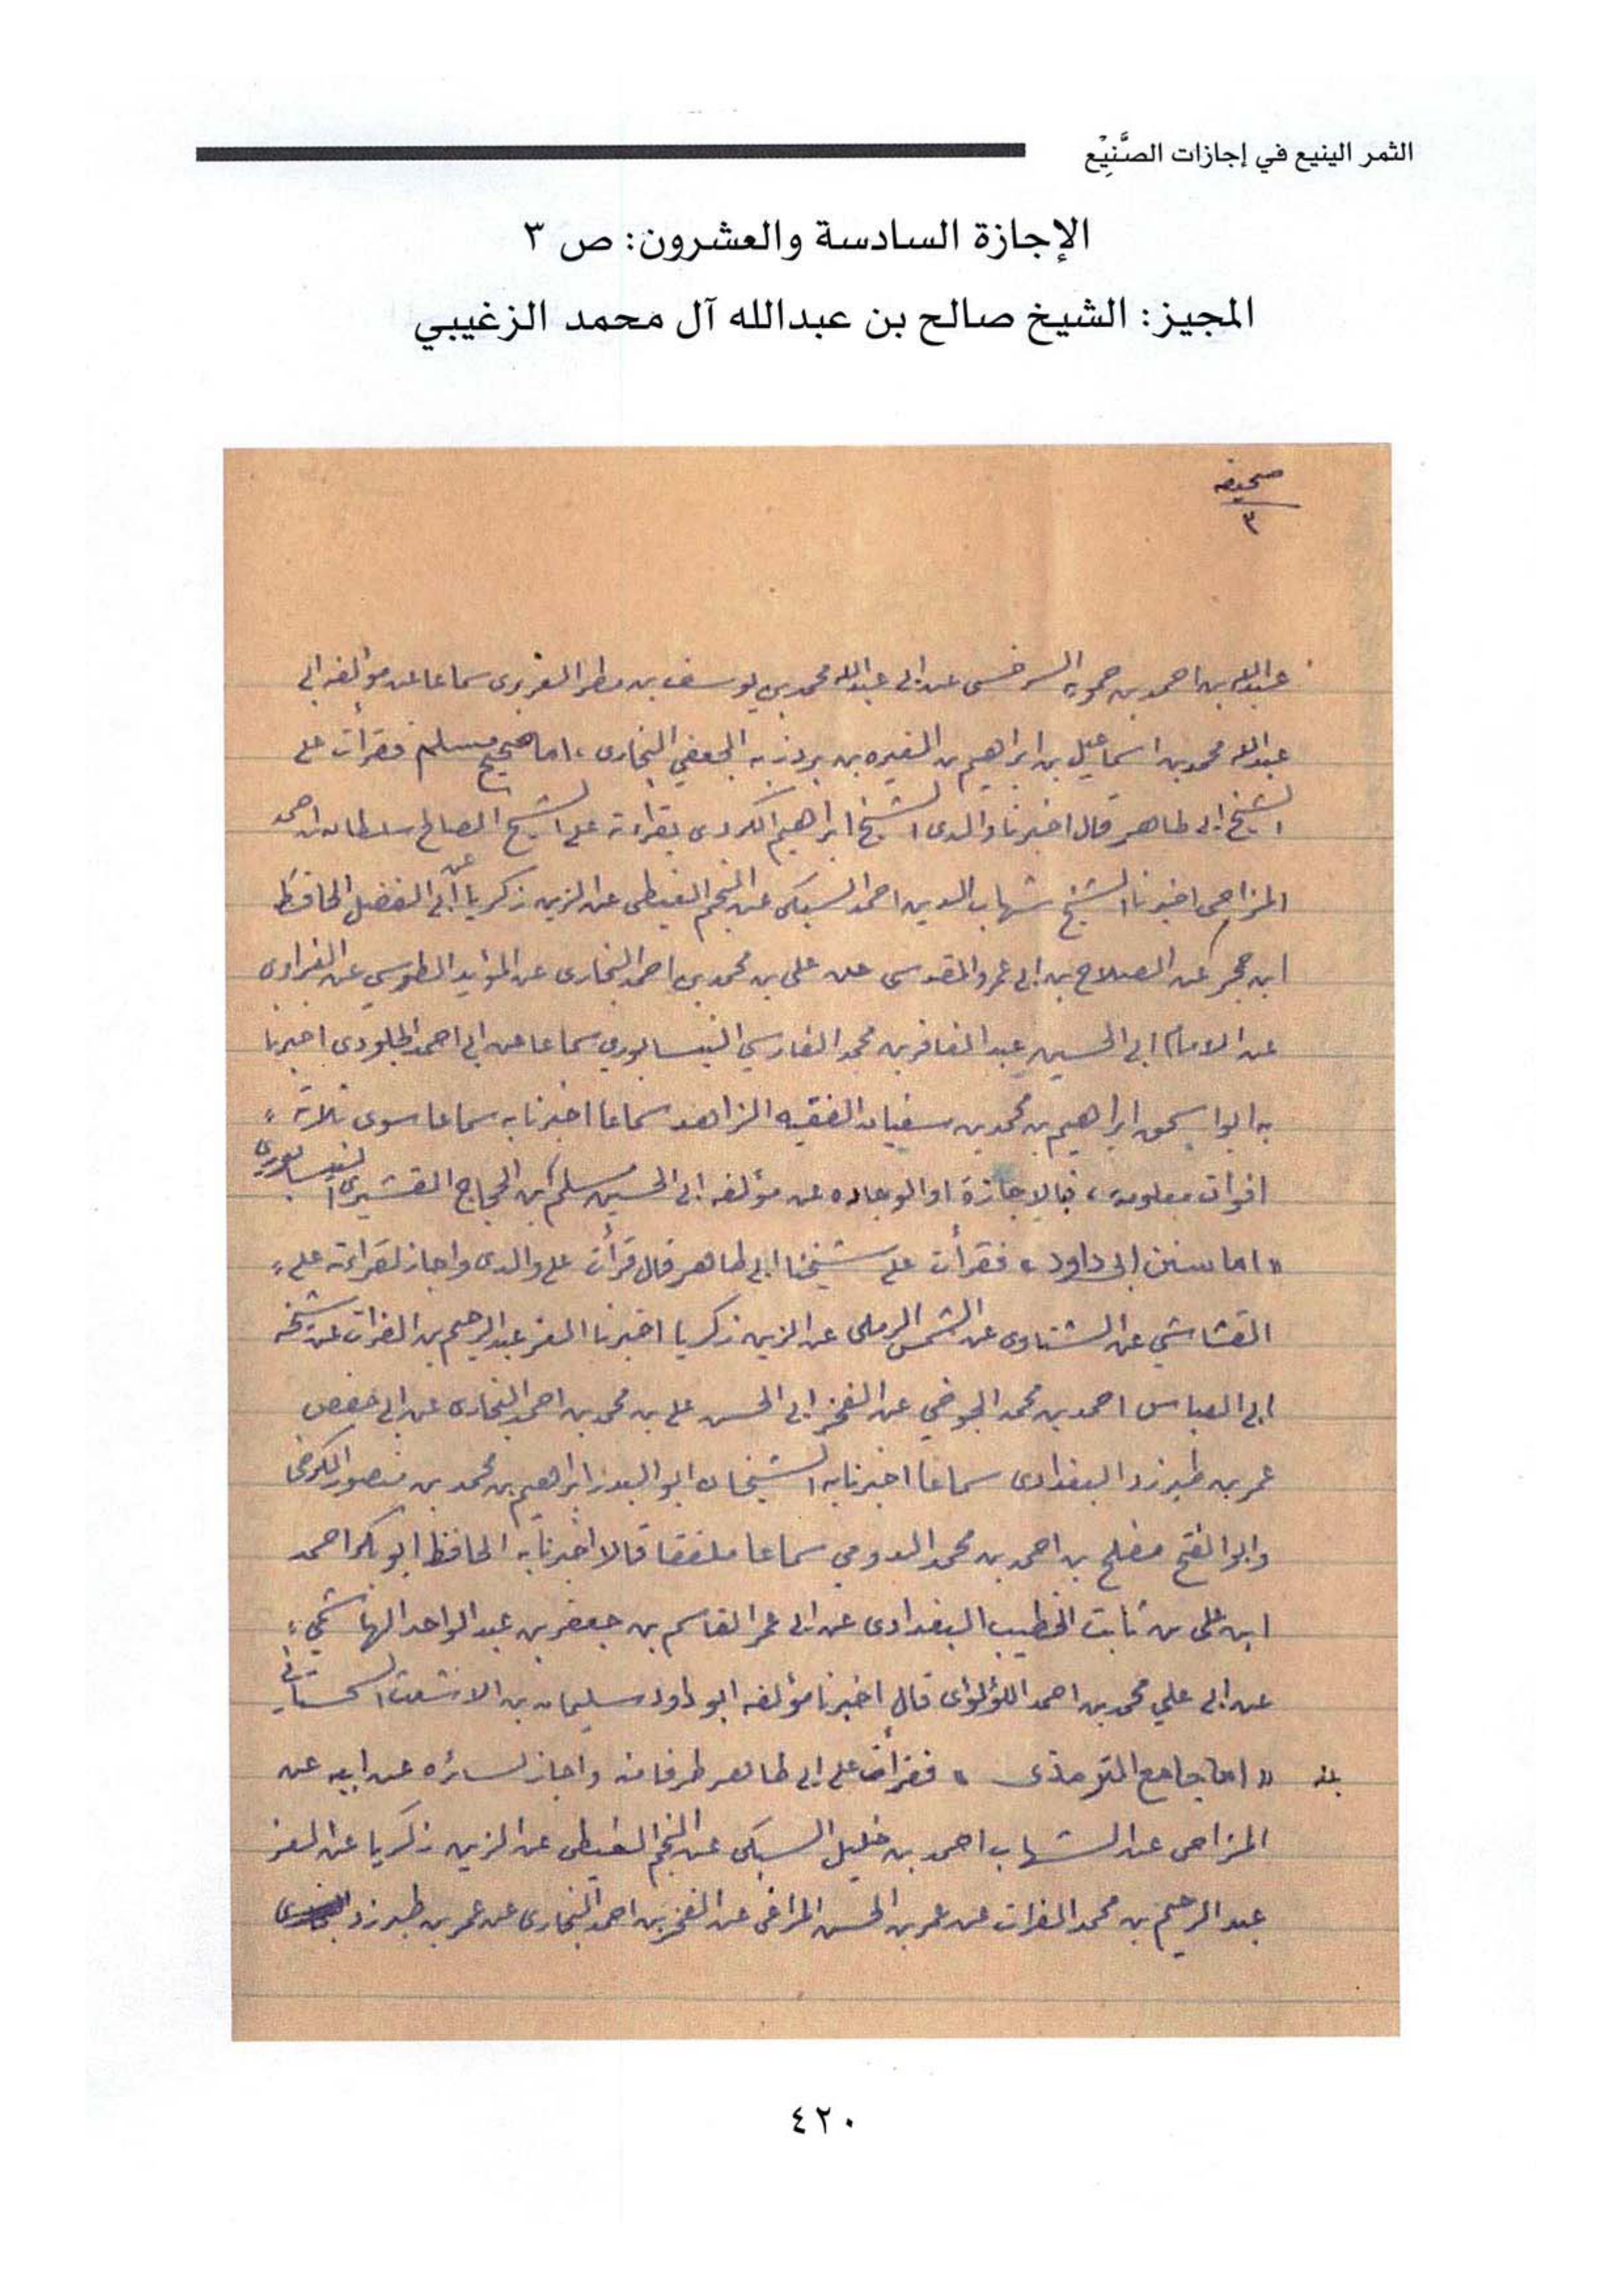 الثمر الينيع في إجازات الصَّنِيْع
الإجازة السادسة والعشرون: ص ٣
المجيز: الشيخ صالح بن عبدالله آل محمد الزغيبي
صحيفه
٣
عبدالله بن احمد بن حمويه السرخسي عن ابي عبدالله محمد بن يوسف بن مطر الفربرى سماعا عن مؤلفه ابي
عبدالله محمد بن اسماعيل بن ابراهيم بن المغيره بن بردزبه الجعفي البخارى، اما صحيح مسلم فقرأت على
الشيخ ابي طاهر قال اخبرنا والدى الشيخ ابراهيم الكردى بقراءته على الشيخ الصالح سلطان بن احمد
المزاحى اخبرنا الشيخ شهاب الدين احمد السبكى عن النجم الغيطى عن الزين زكريا عن أبي الفضل الحافظ
ابن حجر عن الصلاح بن ابي عمرو المقدسى عن على بن محمد بن احمد البخارى عن المؤيد الطوسي عن الفراوى
عن الامام ابي الحسين عبد الغافر بن محمد الفارسي النيسابوري سماعا عن ابي احمد الجلودى اخبرنا
به ابو اسحق ابراهيم بن محمد بن سفيان الفقيه الزاهد سماعا اخبرنا به سماعا سوى ثلاثة
افوات معلومة، فبالاجازة او الوجاده عن مؤلفه ابي الحسين مسلم ابن الحجاج القشيرى النيسابورى
« اما سنن ابي داود » فقرأت على شيخنا ابي طاهر قال قرأت على والدى واجاز لقراءته على
القشاشي عن الشناوى عن الشمس الرملى عن الزين زكريا اخبرنا العز عبد الرحيم بن الفرات عن شيخه
ابي العباس احمد بن محمد الجوخي عن الفخر ابي الحسن على بن محمد بن احمد البخارى عن ابي حفص
عمر بن طبرزد البغدادى سماعا اخبرنا به الشيخان ابو البدر ابراهيم بن محمد بن منصور الكرخى
وابو الفتح مفلح بن احمد بن محمد الدومي سماعا ملفقا قالا اخبرنا به الحافظ ابو بكر احمد
ابن على بن ثابت الخطيب البغدادى عن ابي عمر القاسم بن جعفر بن عبد الواحد الهاشمي
عن ابي علي محمد بن احمد اللؤلؤى قال اخبرنا مؤلفه ابو داود سليمان بن الاشعث السجستاني
« اما جامع الترمذى » فقرأت على ابي طاهر طرفا منه واجاز لسائره عن ابيه عن
المزاحى عن الشهاب احمد بن خليل السبكى عن النجم الغيطى عن الزين زكريا عن العز
عبد الرحيم بن محمد الفرات عن عمر بن الحسن المراغى عن الفخر بن احمد البخارى عن عمر بن طبرزد
٤٢٠